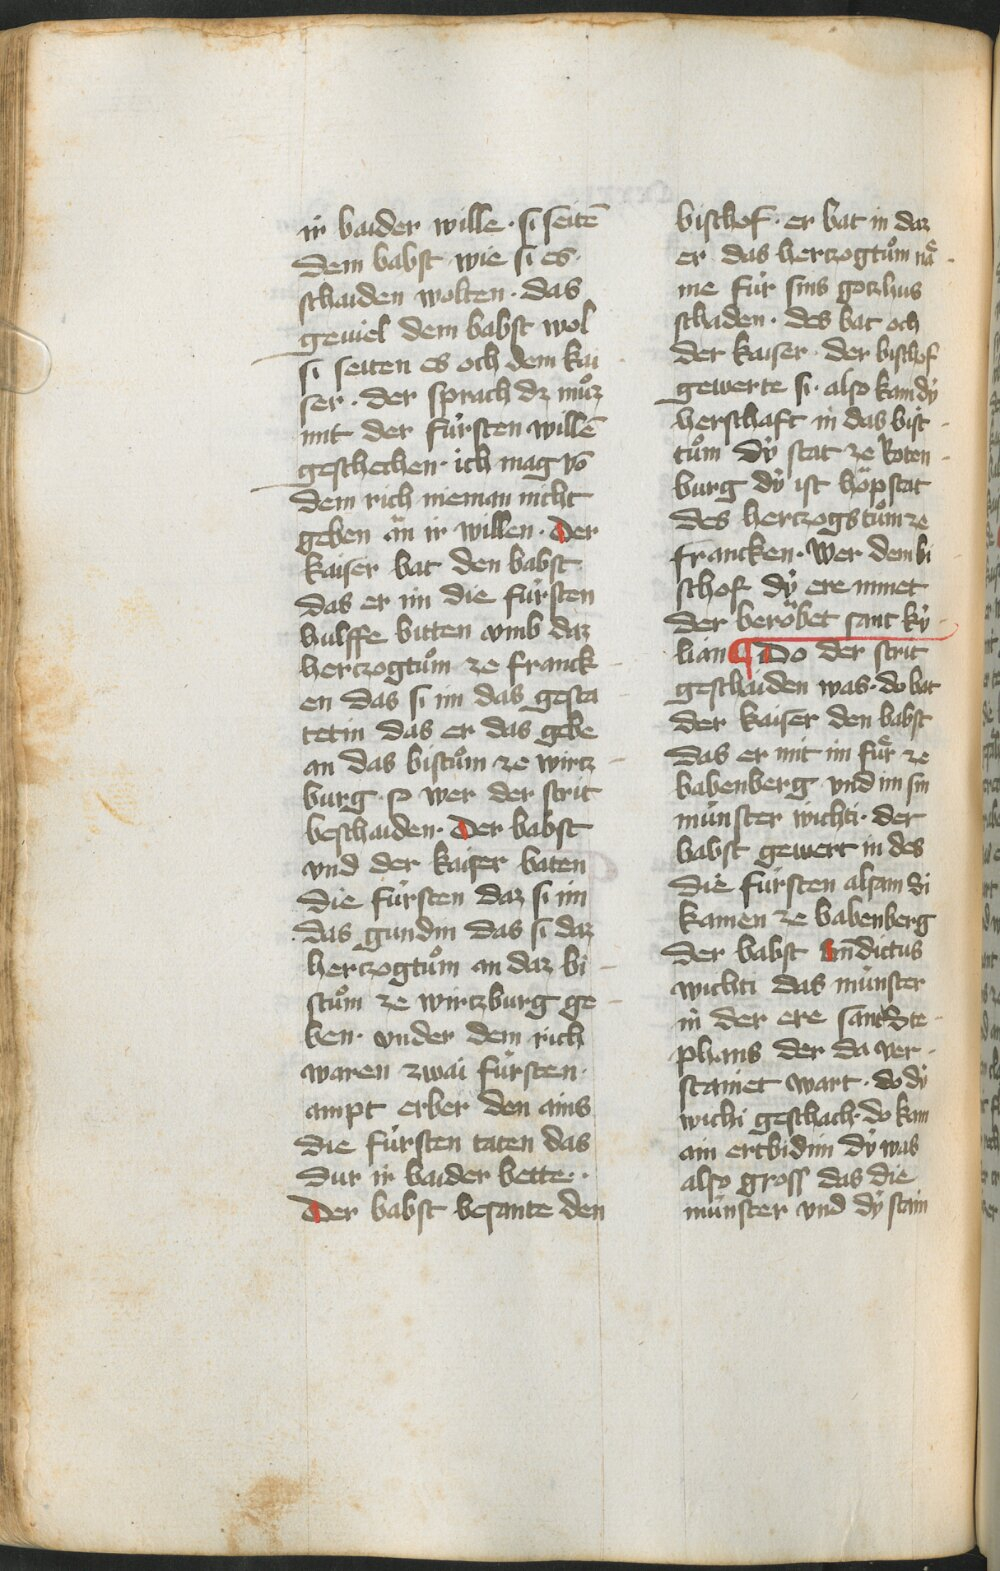 ir baider wille · si seitē
dem babst wie si es ·
schaiden wolten · das
geuiel dem babst wol
si seiten es och dem kai
ser · der sprach dz muͦz
mit der fúrsten willē
geschechen · ich mag vō
dem rich nieman nicht
geben ān ir willen · Der
kaiser bat den babst
das er im die fúrsten
hulffe bitten vmb daz
hertzogtuͦm ze franck
en das si im das gesta
tetin das er das gebe
an das bistuͦm ze wirtz
burg · so wer der strit
beschaiden · Der babst
vnd der kaiser baten
die fúrsten daz si im
das gundin das si daz
hertzogtuͦm an daz bi
stuͦm ze wirtzburg ge
ben · vnder dem rich
waren zwai fúrsten ·
ampt erber den ains
die fúrsten taten das
dur ir baider bette ·
Der babst besante den
bischof · er bat in daz
er das hertzogtuͦm nä
me fúr sins gotzhus
schaden · des bat och
der kaiser · der bischof
gewerte si · also kam dÿ
herschaft in das bist
tuͦm dÿ stat ze Roten
burg dÿ ist höpstat
des hertzogstuͦm ze
francken · Wer dem bi
schof dÿ ere nimet
der beröbet sant kÿ
lian ¶ Do der strit
geschaiden was · do bat
der kaiser den babst
das er mit im fuͤr ze
babenberg vnd im sin
múnster wichti · der
babst gewert in des
die fúrsten alsam di
kamen ze babenberg
der babst bn̄dictus
wichti das múnster
in der ere sant Ste
phans der da ver
stainet wart · do dÿ
wichi geschach · do kam
ain ertbidim dÿ was
also gross das die
múnster vnd dÿ stain